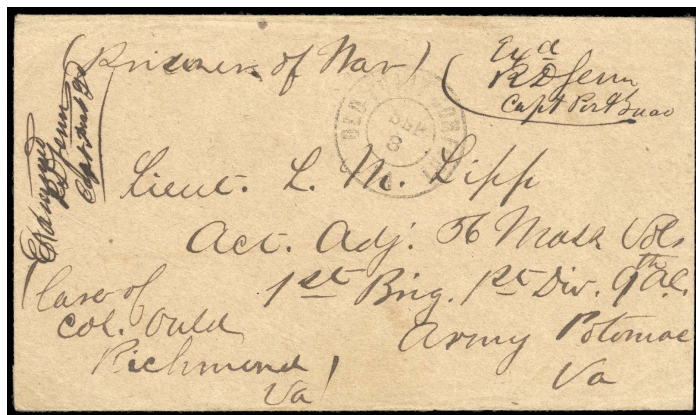 (Prisoner of War)
Exd
R D Senn
Capt Post Guard
Examined
R D Senn
Capt
OLD POINT COMFORT
SEP
8
Lieut. L. M. Lipp
Act. Adj. 56 Mass Vols
1st Brig. 1st Div. 9th A.C.
Army Potomac
Va
Care of
Col. Ould
Richmond
Va